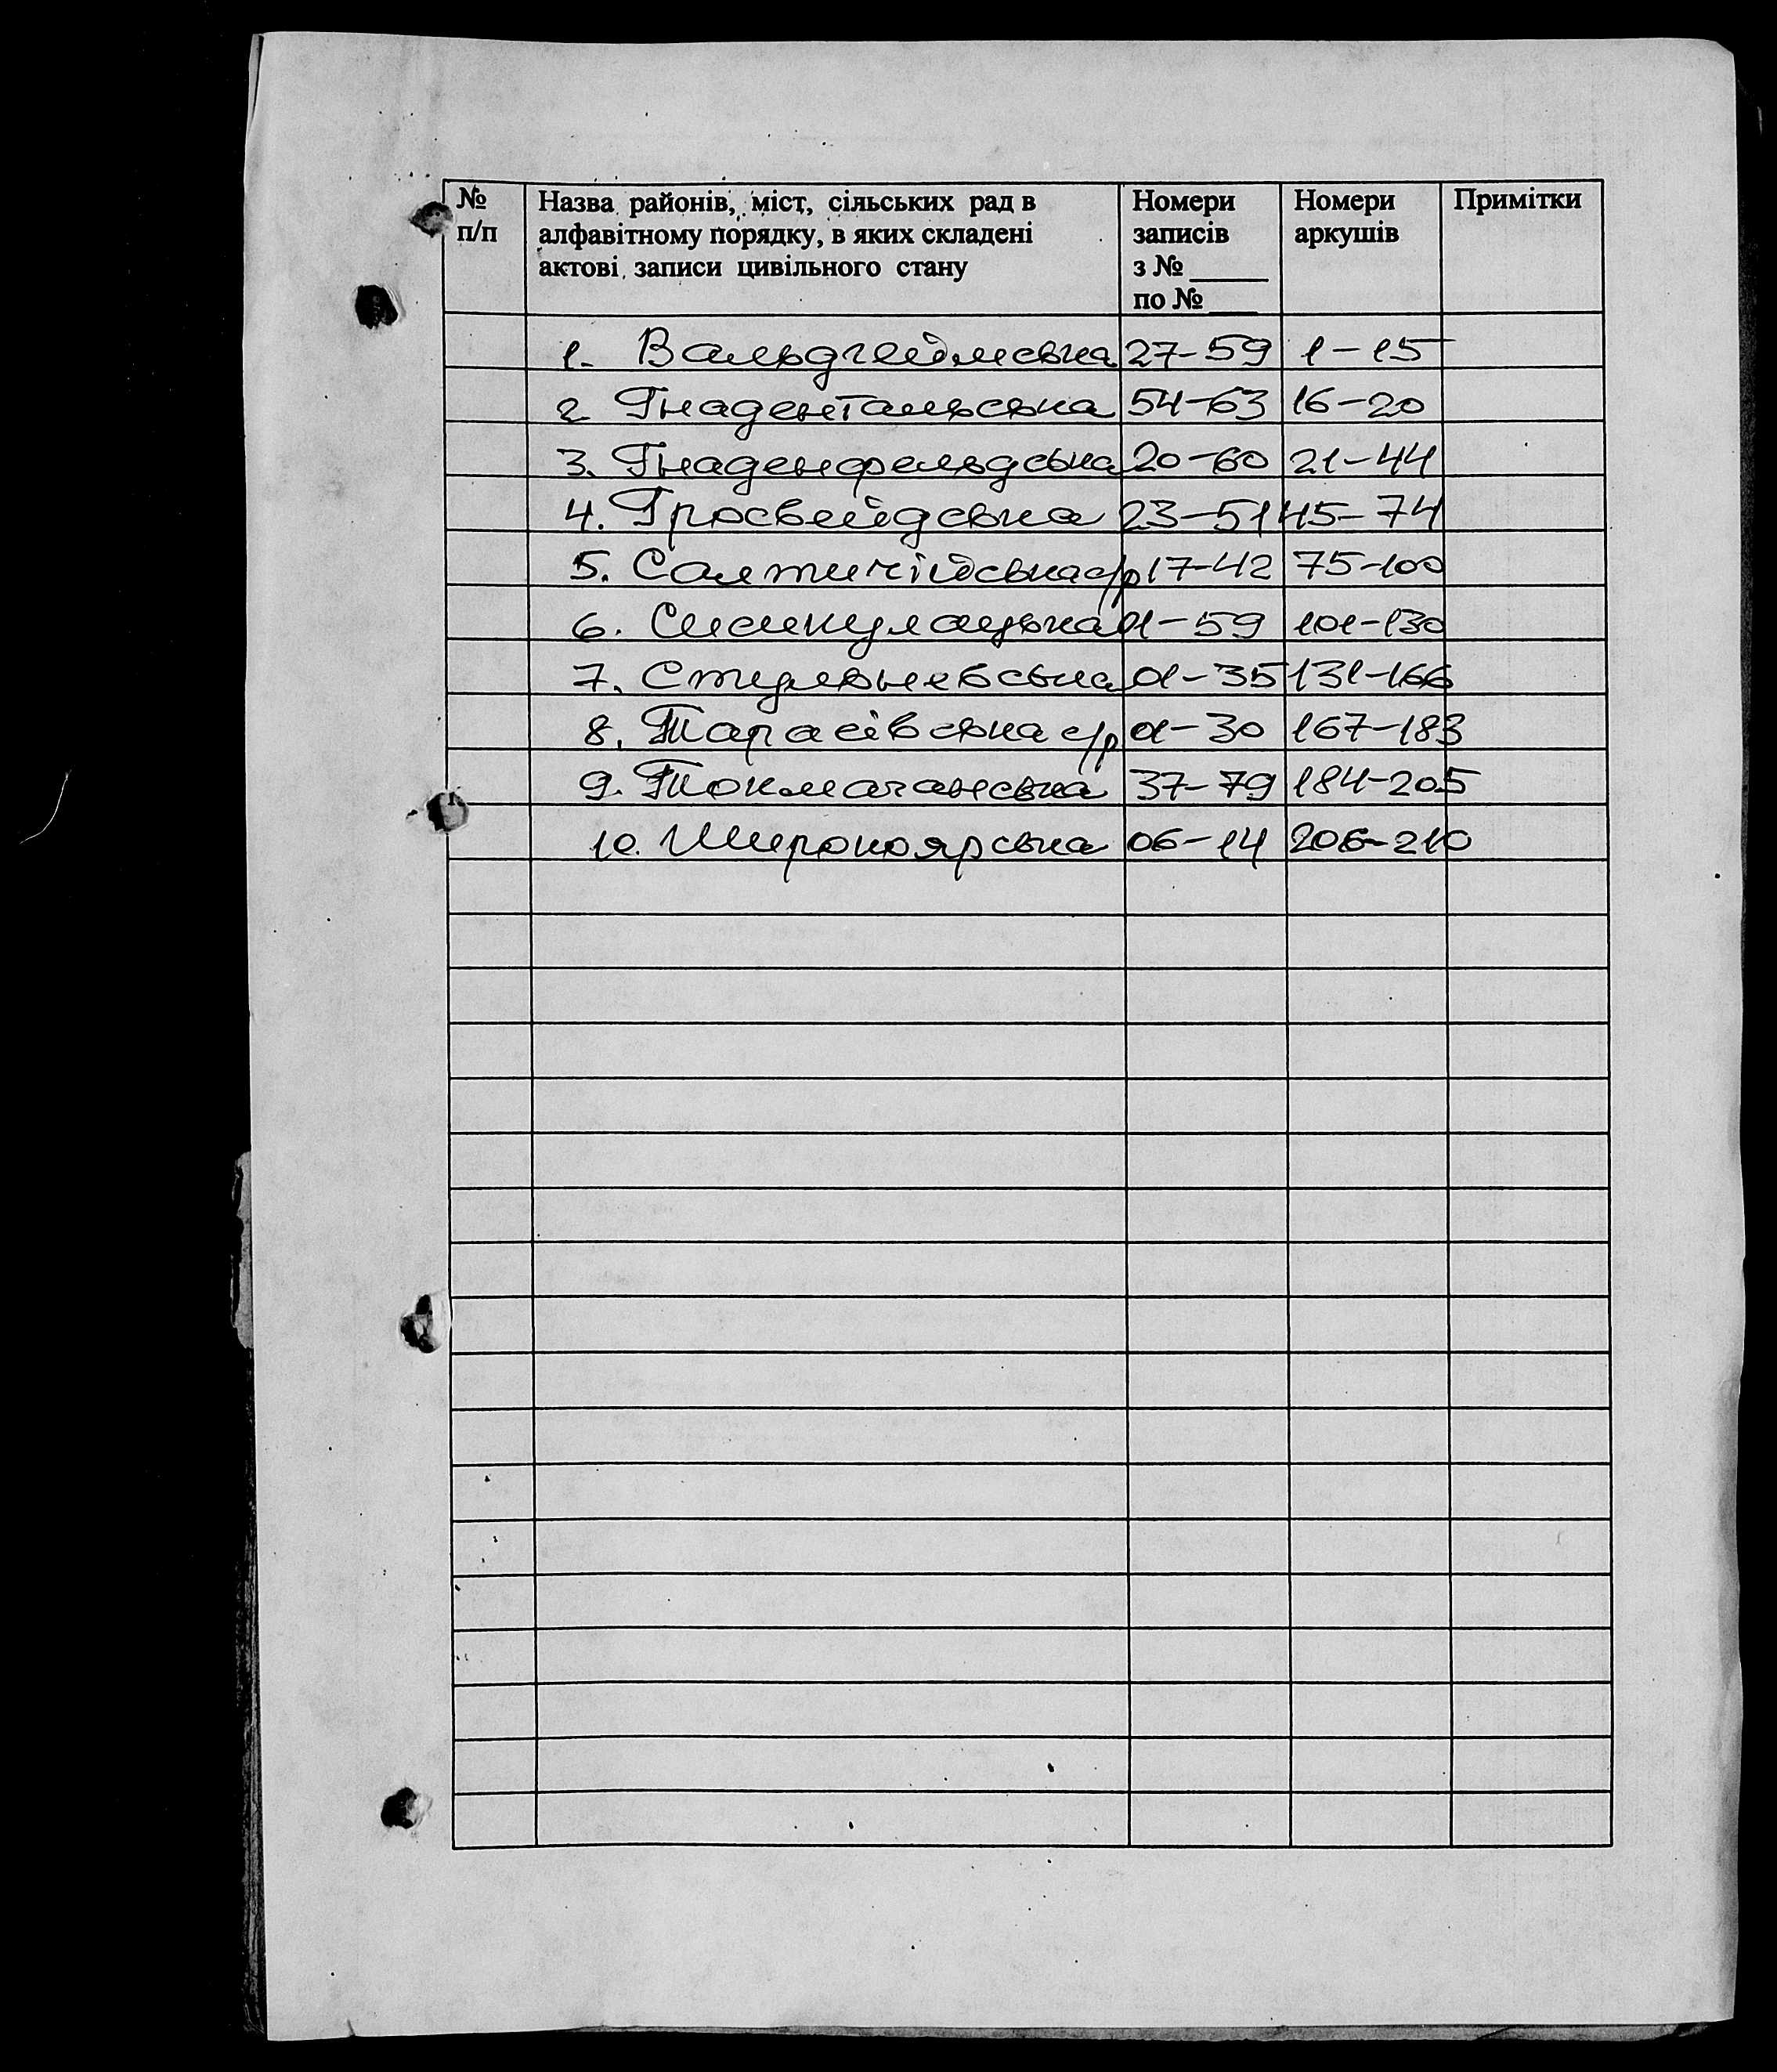 № п/п
Назва районів, міст, сільських рад в алфавітному порядку, в яких складені актові записи цивільного стану
Номери записів з № ____ по № ____
Номери аркушів
Примітки
1. Вальдгеймська 27-59 1-15
2 Гнадентальська 54-63 16-20
3. Гнаденфельдська 20-60 21-44
4. Гросвейдська 23-51 45-74
5. Салтичійська с/р 17-42 75-100
6. 01-59 101-130
7. Стулнєвська 01-35 131-166
8. Тарасівська с/р 01-30 167-183
9. Токмачанська 37-79 184-205
10. Широкоярська 06-14 206-210